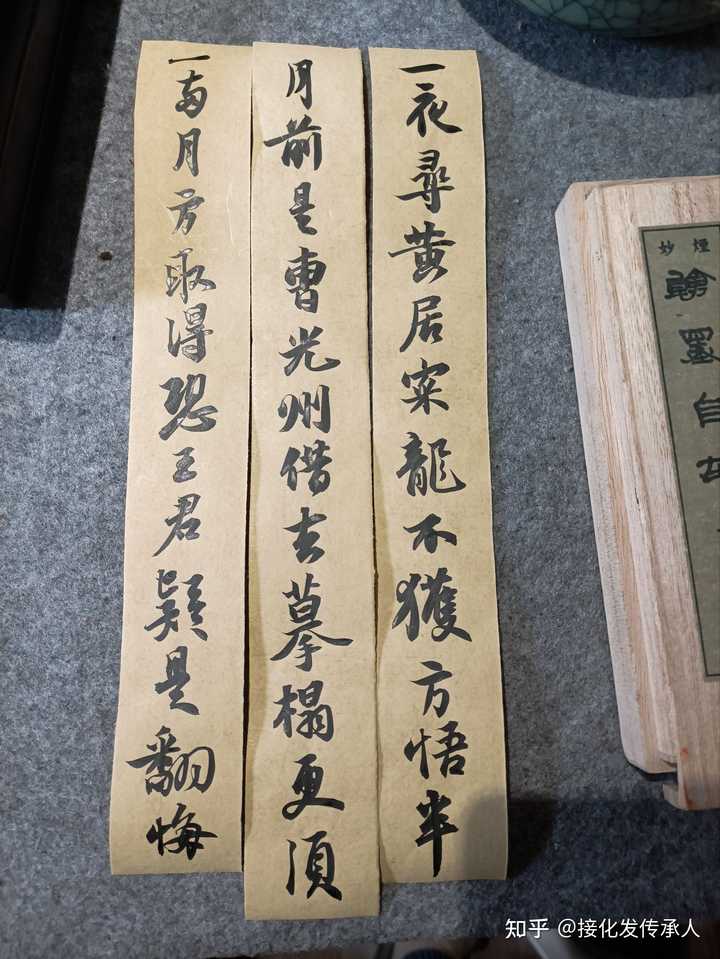 一夜尋黄居寀龍不獲方悟半
月前是曹光州借去摹榻更須
一兩月方取得恐王君疑是翻悔
煙妙
翰墨自
知乎 @接化发传承人